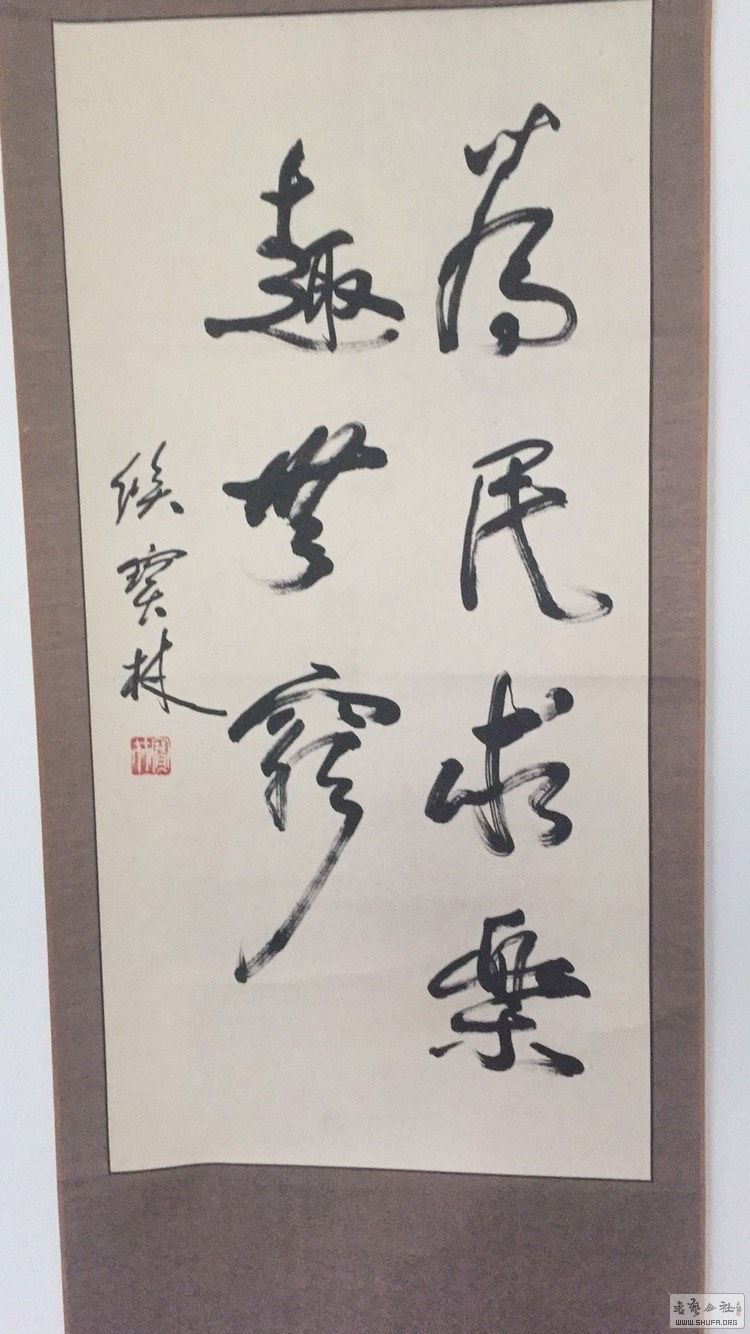 為民求樂
趣無窮
侯寶林
寶林
書藝公社
WWW.SHUFA.ORG